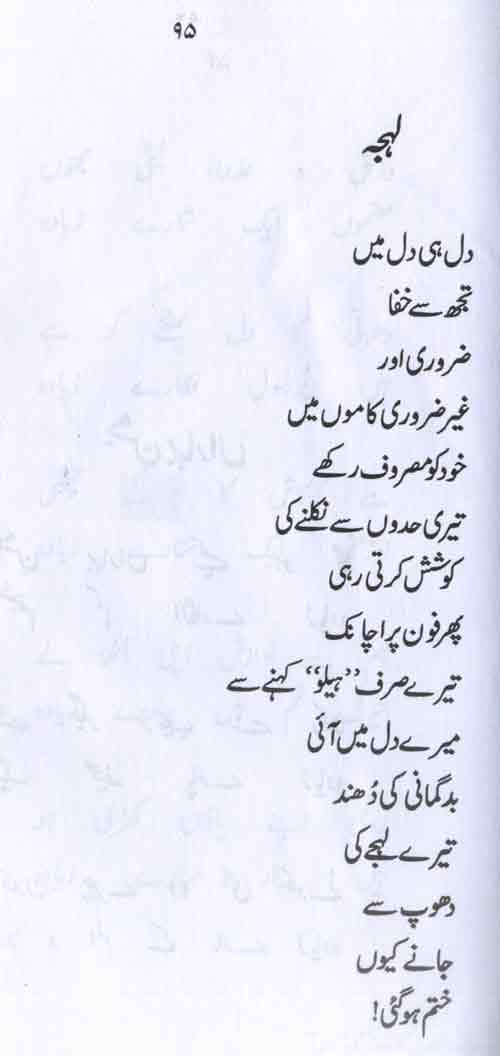 ۹۵
لہجہ
دل ہی دل میں
تجھ سے خفا
ضروری اور
غیر ضروری کاموں میں
خود کو مصروف رکھے
تیری حدوں سے نکلنے کی
کوشش کرتی رہی
پھر فون پر اچانک
تیرے صرف ’’ہیلو‘‘ کہنے سے
میرے دل میں آئی
بدگمانی کی دُھند
تیرے لہجے کی
دھوپ سے
جانے کیوں
ختم ہو گئی!